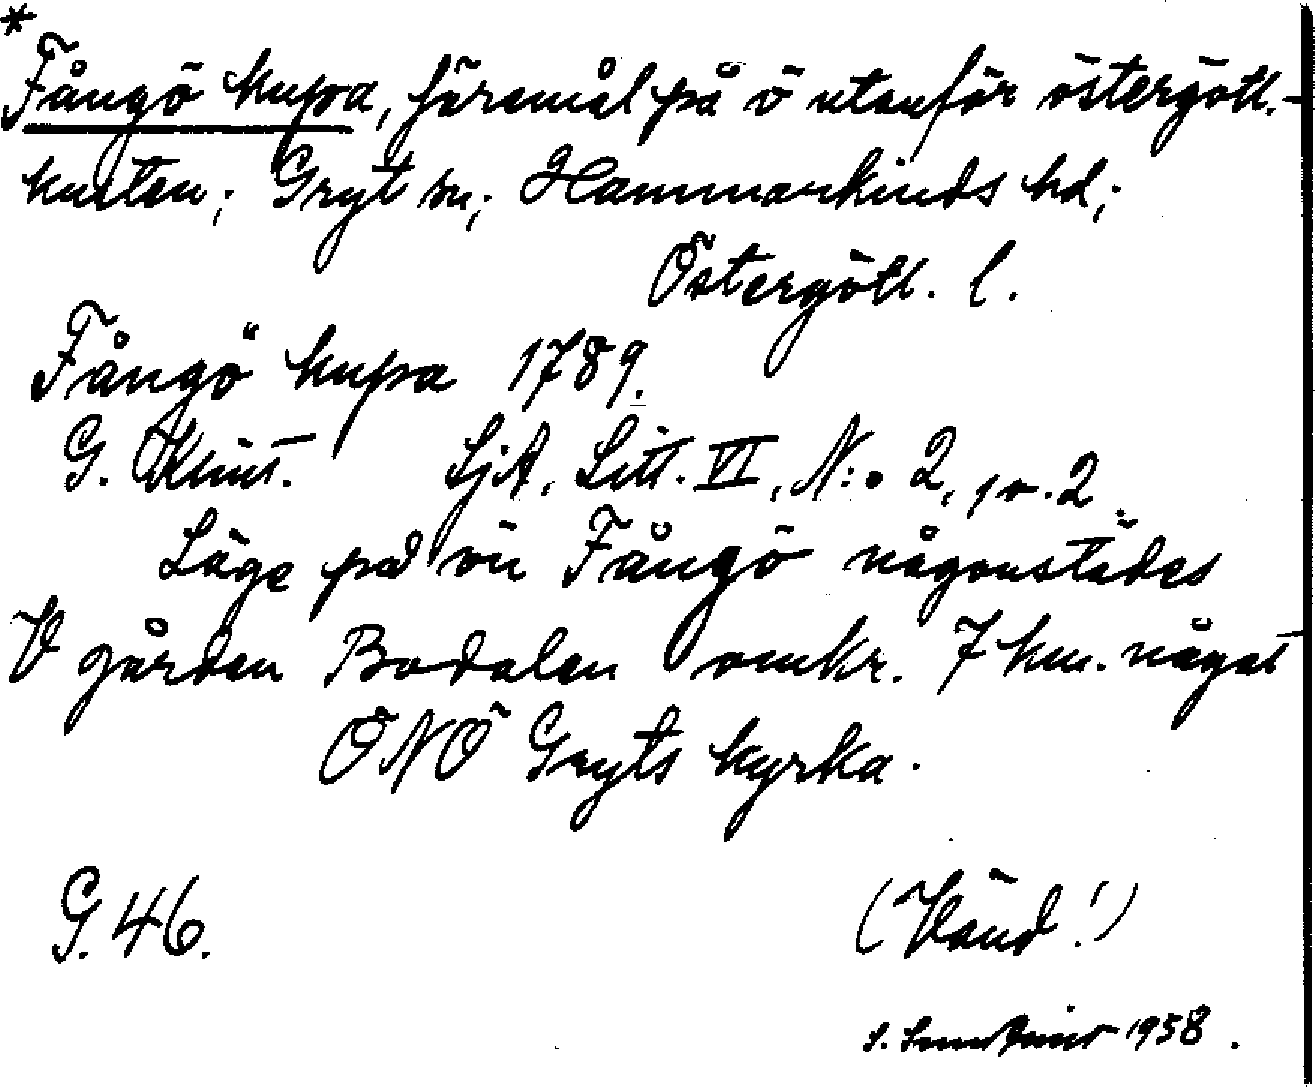 *
Fångö kupa, föremål på ö utanför östergötl.-
kusten; Gryt sn; Hammarkinds hd;
Östergötl. l.
Fångö kupa 1789.
G. Klint. SjA, Litt. VI, N:o 2, nr. 2.
Läge på ön Fångö någonstädes
V gården Bodalen omkr. 7 km. något
ÖNÖ Gryts kyrka.
G. 46. (Vänd!)
S. 1958.